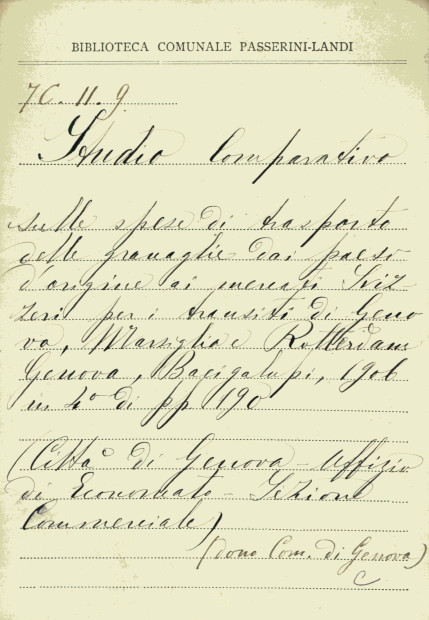 BIBLIOTECA COMUNALE PASSERINI-LANDI
7C. 11. 9
Studio Comparativo
sulle spese di trasporto
delle granaglie dai paesi
d'origine ai mercati Sviz
zeri per i transiti di Geno
va, Marsiglia e Rotterdam
Genova, Bacigalupi, 1906
in 4° di pp 190
(Città di Genova - Uffizio
di Economato - Sezione
Commerciale)
(dono Com. di Genova)
C